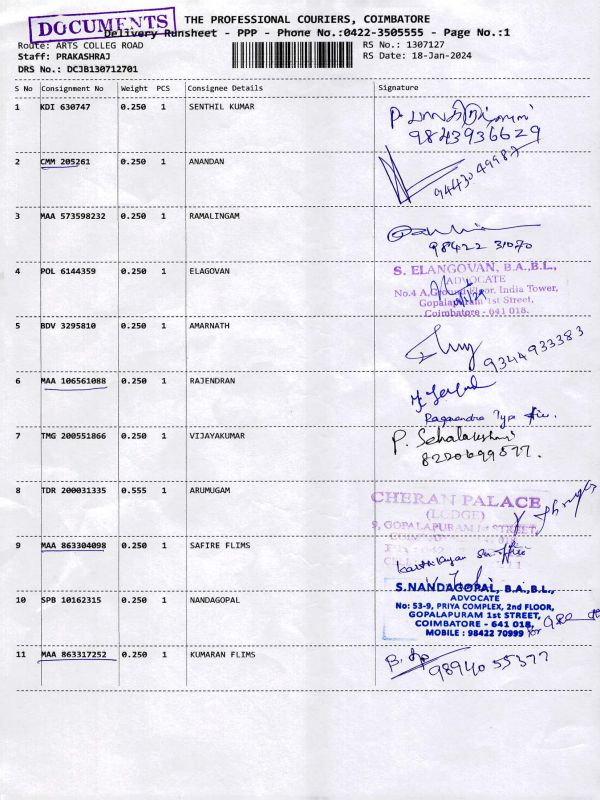 DOCUMENTS
THE PROFESSIONAL COURIERS, COIMBATORE
Delivery Runsheet - PPP - Phone No.:0422-3505555 - Page No.:1
Route: ARTS COLLEG ROAD
RS No.: 1307127
Staff: PRAKASHRAJ
RS Date: 18-Jan-2024
DRS No.: DCJB130712701
S No Consignment No Weight PCS Consignee Details Signature
1 KDI 630747 0.250 1 SENTHIL KUMAR
9843936629
2 CMM 205261 0.250 1 ANANDAN
9443049987
3 MAA 573598232 0.250 1 RAMALINGAM
98422 31070
4 POL 6144359 0.250 1 ELAGOVAN
S. ELANGOVAN, B.A.,B.L.,
ADVOCATE
No.4 A,Ground Floor, India Tower,
Gopalapuram 1st Street,
Coimbatore - 641 018.
5 BDV 3295810 0.250 1 AMARNATH
9344933383
6 MAA 106561088 0.250 1 RAJENDRAN
7 TMG 200551866 0.250 1 VIJAYAKUMAR
P.
8220699577.
8 TDR 200031335 0.555 1 ARUMUGAM
CHERAN PALACE
(LODGE)
9, GOPALAPURAM 1st STREET,
9 MAA 863304098 0.250 1 SAFIRE FLIMS
10 SPB 10162315 0.250 1 NANDAGOPAL
S.NANDAGOPAL, B.A.,B.L.,
ADVOCATE
No: 53-9, PRIYA COMPLEX, 2nd FLOOR,
GOPALAPURAM 1st STREET,
COIMBATORE - 641 018.
MOBILE : 98422 70999
11 MAA 863317252 0.250 1 KUMARAN FLIMS
98940 55377